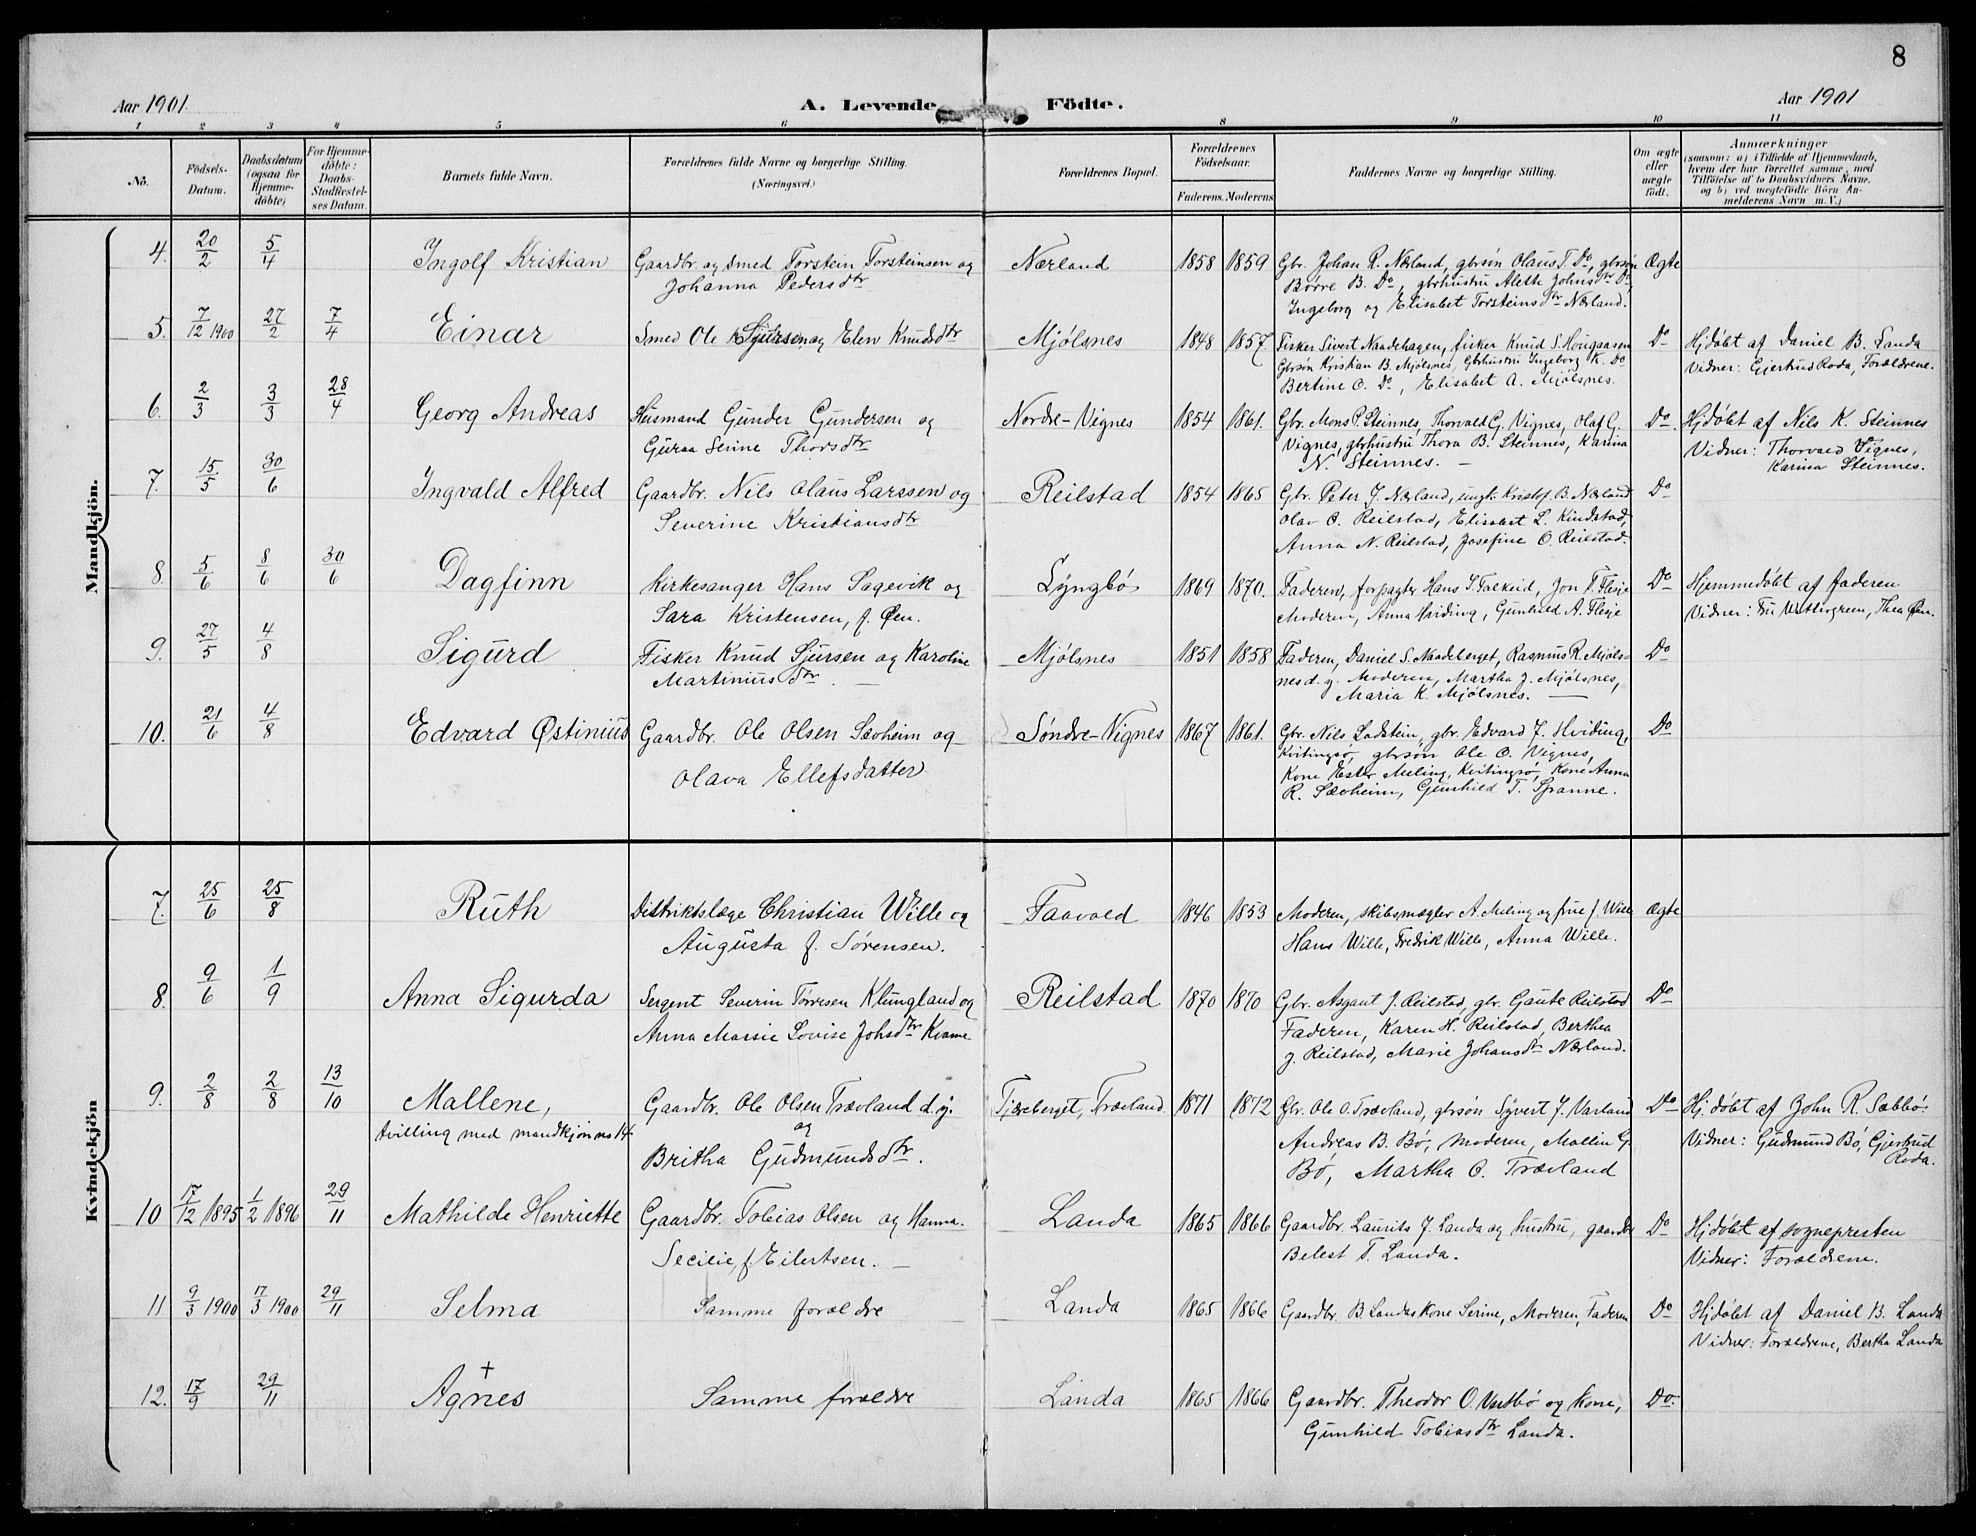 8
Aar 1901. A. Levende Födte. Aar 1901
1 2 3 4 5 6 8 9 10 11
No.
Födsels-Datum.
Daabsdatum (ogsaa for Hjemme-döbte)
For Hjemme-döbte: Daabs-Stadfæstel-ses Datum.
Barnets fulde Navn.
Forældrenes fulde Navne og borgerlige Stilling.
(Næringsvei.)
Forældrenes Bopæl.
Forældrenes Födselsaar.
Faderens. Moderens
Faddernes Navne og borgerlige Stilling.
Om ægte eller uægte födt.
Anmærkninger
(saasom: a) i Tilfælde af Hjemmedaab,
hvem der har forrettet samme, med
Tilföielse af to Daabsvidners Navne,
og b) ved uægtefödte Börn An-
melderens Navn m. V.)
Mandkjön.
4. 20/2 5/4 Ingolf Kristian Gaardbr. og smed Torstein Torsteinsen og Nærland 1858 1859 Gbr. Johan R. Nærland, gbrsøn Olaus T. Do, gbrsøn Ægte
Johanna Pedersdtr Børre B. Do, gbrhustru Alette Johnsdtr Do,
Ingeborg og Elisabet Torsteinsdtr Nærland.
5. 7/12 1900 27/2 7/4 Einar Smed Ole Sjursen og Elen Knudsdtr Mjølsnes 1848 1857. Fisker Sivert Naadehagen, fisker Knud S. Hougaasen Do Hjdøbt af Daniel B. Landa
Gbrsøn Kristian B. Mjølsnes, Gbrhustru Ingeborg K. Do Vidner: Gjertrud Roda, Forældrene.
Bertine O. Do, Elisabet A. Mjølsnes.
6. 2/3 3/3 28/4 Georg Andreas Husmand Gunder Gundersen og Nordre-Vignes 1854 1861. Gbr. Mons P. Steinnes, Thorvald G. Vignes, Olaf G. Do. Hjdøbt af Nils K. Steinnes
Guraa Serine Thorsdtr Vignes, gbrhustru Thora B. Steinnes, Karina Vidner: Thorvald Vignes,
N. Steinnes. — Karina Steinnes.
7. 15/5 30/6 Ingvald Alfred Gaardbr. Nils Olaus Larssen og Reilstad 1854 1865 Gbr. Peter J. Nærland, ungk. Kristof. B. Nærland Do
Severine Kristiansdtr Olav O. Reilstad, Elisabet L. Kindstad,
Anna N. Reilstad, Josefine O. Reilstad.
8. 5/6 8/6 30/6 Dagfinn Kirkesanger Hans Sagevik og Lyngbø 1869 1870. Faderen, forpagter Hans S. Falkeid, Jon T. Flesje Do Hjemmedøbt af Faderen
Sara Kristensen, f. Øen. Moderen, Anna Hviding, Gunhild A. Flesje Vidner: Fru Wettergreen, Thea Øen.
9. 27/5 4/8 Sigurd Fisker Knud Sjursen og Karoline Mjølsnes 1851 1858 Faderen, Daniel S. Naadeberget, Rasmus R. Mjøls- Do
Martiniusdtr. — nes d. y. Moderen, Martha J. Mjølsnes,
Maria K. Mjølsnes. —
10. 21/6 4/8 Edvard Østinius Gaardbr. Ole Olsen Sævheim og Søndre-Vignes 1867 1861. Gbr. Nils Ladstein, gbr. Edvard J. Hviding, Do
Olava Ellefsdatter Kvitingsø, gbrsøn Ole O. Vignes,
Kone Ester Meling, Kvitingsø, Kone Anna
R. Sævheim, Gunhild T. Spanne.
Kvindekjön
7. 25/6 25/8 Ruth Distriktslæge Christian Wille og Faavold 1846 1853 Moderen, skibsmægler A. Meling og frue f. Wille Ægte
Augusta f. Sørensen. Hans Wille, Fredrik Wille, Anna Wille.
8. 9/6 1/9 Anna Sigurda Sergent Severin Tørresen Klungland og Reilstad 1870 1870 Gbr. Asgaut J. Reilstad, gbr. Gaute Reilstad Do
Anna Massie Lovise Johsdtr Kvame Faderen, Karen H. Reilstad, Berthea
J. Reilstad, Marie Johansdtr Nærland.
9. 2/8 2/8 13/10 Mallene, Gaardbr. Ole Olsen Trævland d. y. Tjæreberget, Trævland 1871 1872 Gbr. Ole O. Trævland, gbrsøn Syvert J. Varland Do Hj.døbt af John R. Sæbbø.
tvilling med mandkjøn no 14. og Andreas B. Bø, Moderen, Mallin G. Vidner: Gudmund Bø, Gjertrud
Britha Gudmundsdtr. Bø, Martha O. Trævland Roda.
10 17/12 1895 1/2 1896 29/11 Mathilde Henriette Gaardbr. Tobias Olsen og Hanna Landa 1865 1866 Gaardbr. Laurits J. Landa og hustru, gaardbr Do Hjdøbt af sognepresten
Secilie, f. Eilertsen. — Belest T. Landa. Vidner: Forældrene.
11 9/3 1900 17/3 1900 29/11 Selma Samme forældre Landa 1865 1866 Gaardbr. B. Landas kone Serine, Moderen, Faderen Do Hjdøbt af Daniel B. Landa
Vidner: Forældrene, Bertha Landa
12. 17/9 29/11 + Agnes Samme forældre Landa 1865 1866 Gaardbr. Theodor O. Vestbø og kone, Do.
Gunhild Tobiasdtr Landa.